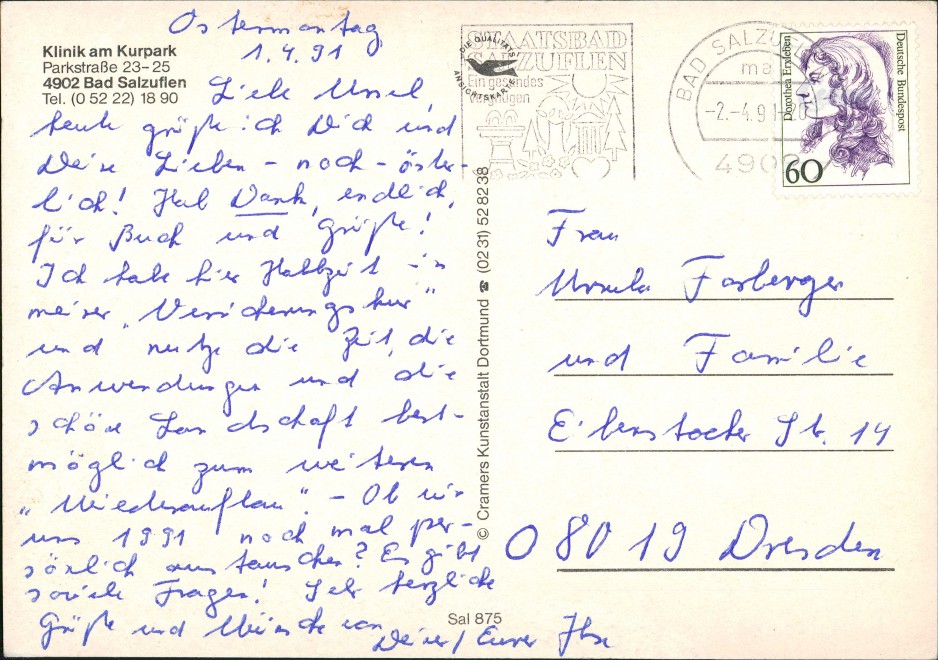 Ostermontag
1.4.91
Klinik am Kurpark
Parkstraße 23-25
4902 Bad Salzuflen
Tel. (0 52 22) 18 90
Liebe Ursel,
heute grüße ich Dich und
Deine Lieben - noch - öster-
lich! Hab Dank, endlich,
für Buch und Grüße!
Ich habe hier Halbzeit in
meiner "Versicherungskur"
und nutze die Zeit, die
Anwendungen und die
schöne Landschaft best-
möglich zum weiteren
"Wiederaufbau". - Ob wir
uns 1991 noch mal per-
sönlich austauschen? Es gibt
soviele Fragen! Sehr herzliche
Grüße und Wünsche von
Deiner / Eurer
© Cramers Kunstanstalt Dortmund ☎ (02 31) 52 82 38
Sal 875
DIE QUALITÄTS
ANSICHTSKARTE
STAATSBAD
SALZUFLEN
Ein gesundes
Vergnügen
BAD SALZUFLEN
ma
-2.-4.91-20
4902
Dorothea Erxleben
Deutsche Bundespost
60
Frau
Ursula Farberger
und Familie
Eibenstocker Str. 14
O 8019 Dresden